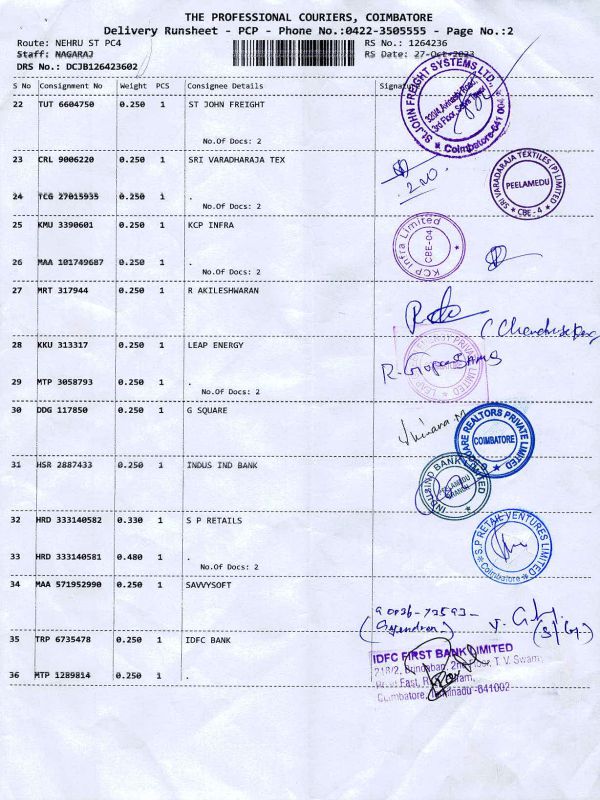 THE PROFESSIONAL COURIERS, COIMBATORE
Delivery Runsheet - PCP - Phone No.:0422-3505555 - Page No.:2
Route: NEHRU ST PC4 RS No.: 1264236
Staff: NAGARAJ RS Date: 27-Oct-2023
DRS No.: DCJB126423602
S No Consignment No Weight PCS Consignee Details Signature
22 TUT 6604750 0.250 1 ST JOHN FREIGHT
No.Of Docs: 2
ST.JOHN FREIGHT SYSTEMS LTD.,
3rd Floor,
Coimbatore-641 004
23 CRL 9006220 0.250 1 SRI VARADHARAJA TEX
24 TCG 27015935 0.250 1 .
No.Of Docs: 2
SRI VARADARAJA TEXTILES (P) LIMITED
PEELAMEDU
CBE - 4
25 KMU 3390601 0.250 1 KCP INFRA
KCP Infra Limited
CBE-04
26 MAA 101749687 0.250 1 .
No.Of Docs: 2
27 MRT 317944 0.250 1 R AKILESHWARAN
28 KKU 313317 0.250 1 LEAP ENERGY
29 MTP 3058793 0.250 1 .
No.Of Docs: 2
30 DDG 117850 0.250 1 G SQUARE
SQUARE REALTORS PRIVATE LIMITED
COIMBATORE
31 HSR 2887433 0.250 1 INDUS IND BANK
INDUSIND BANK LIMITED
32 HRD 333140582 0.330 1 S P RETAILS
33 HRD 333140581 0.480 1 .
No.Of Docs: 2
S.P RETAIL VENTURES LIMITED
Coimbatore
34 MAA 571952990 0.250 1 SAVVYSOFT
35 TRP 6735478 0.250 1 IDFC BANK
36 MTP 1289814 0.250 1 .
IDFC FIRST BANK LIMITED
218/2, Brindaban, 2nd Floor, T. V. Swamy
Coimbatore, Tamilnadu -641002